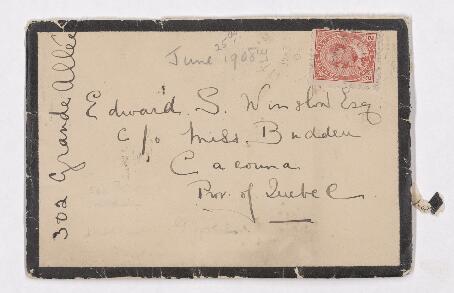 302 Grande Allée
June 25th 1908
Edward S. Winslow Esq.
c/o Miss. Budden
Cacouna
Prov. of Quebec